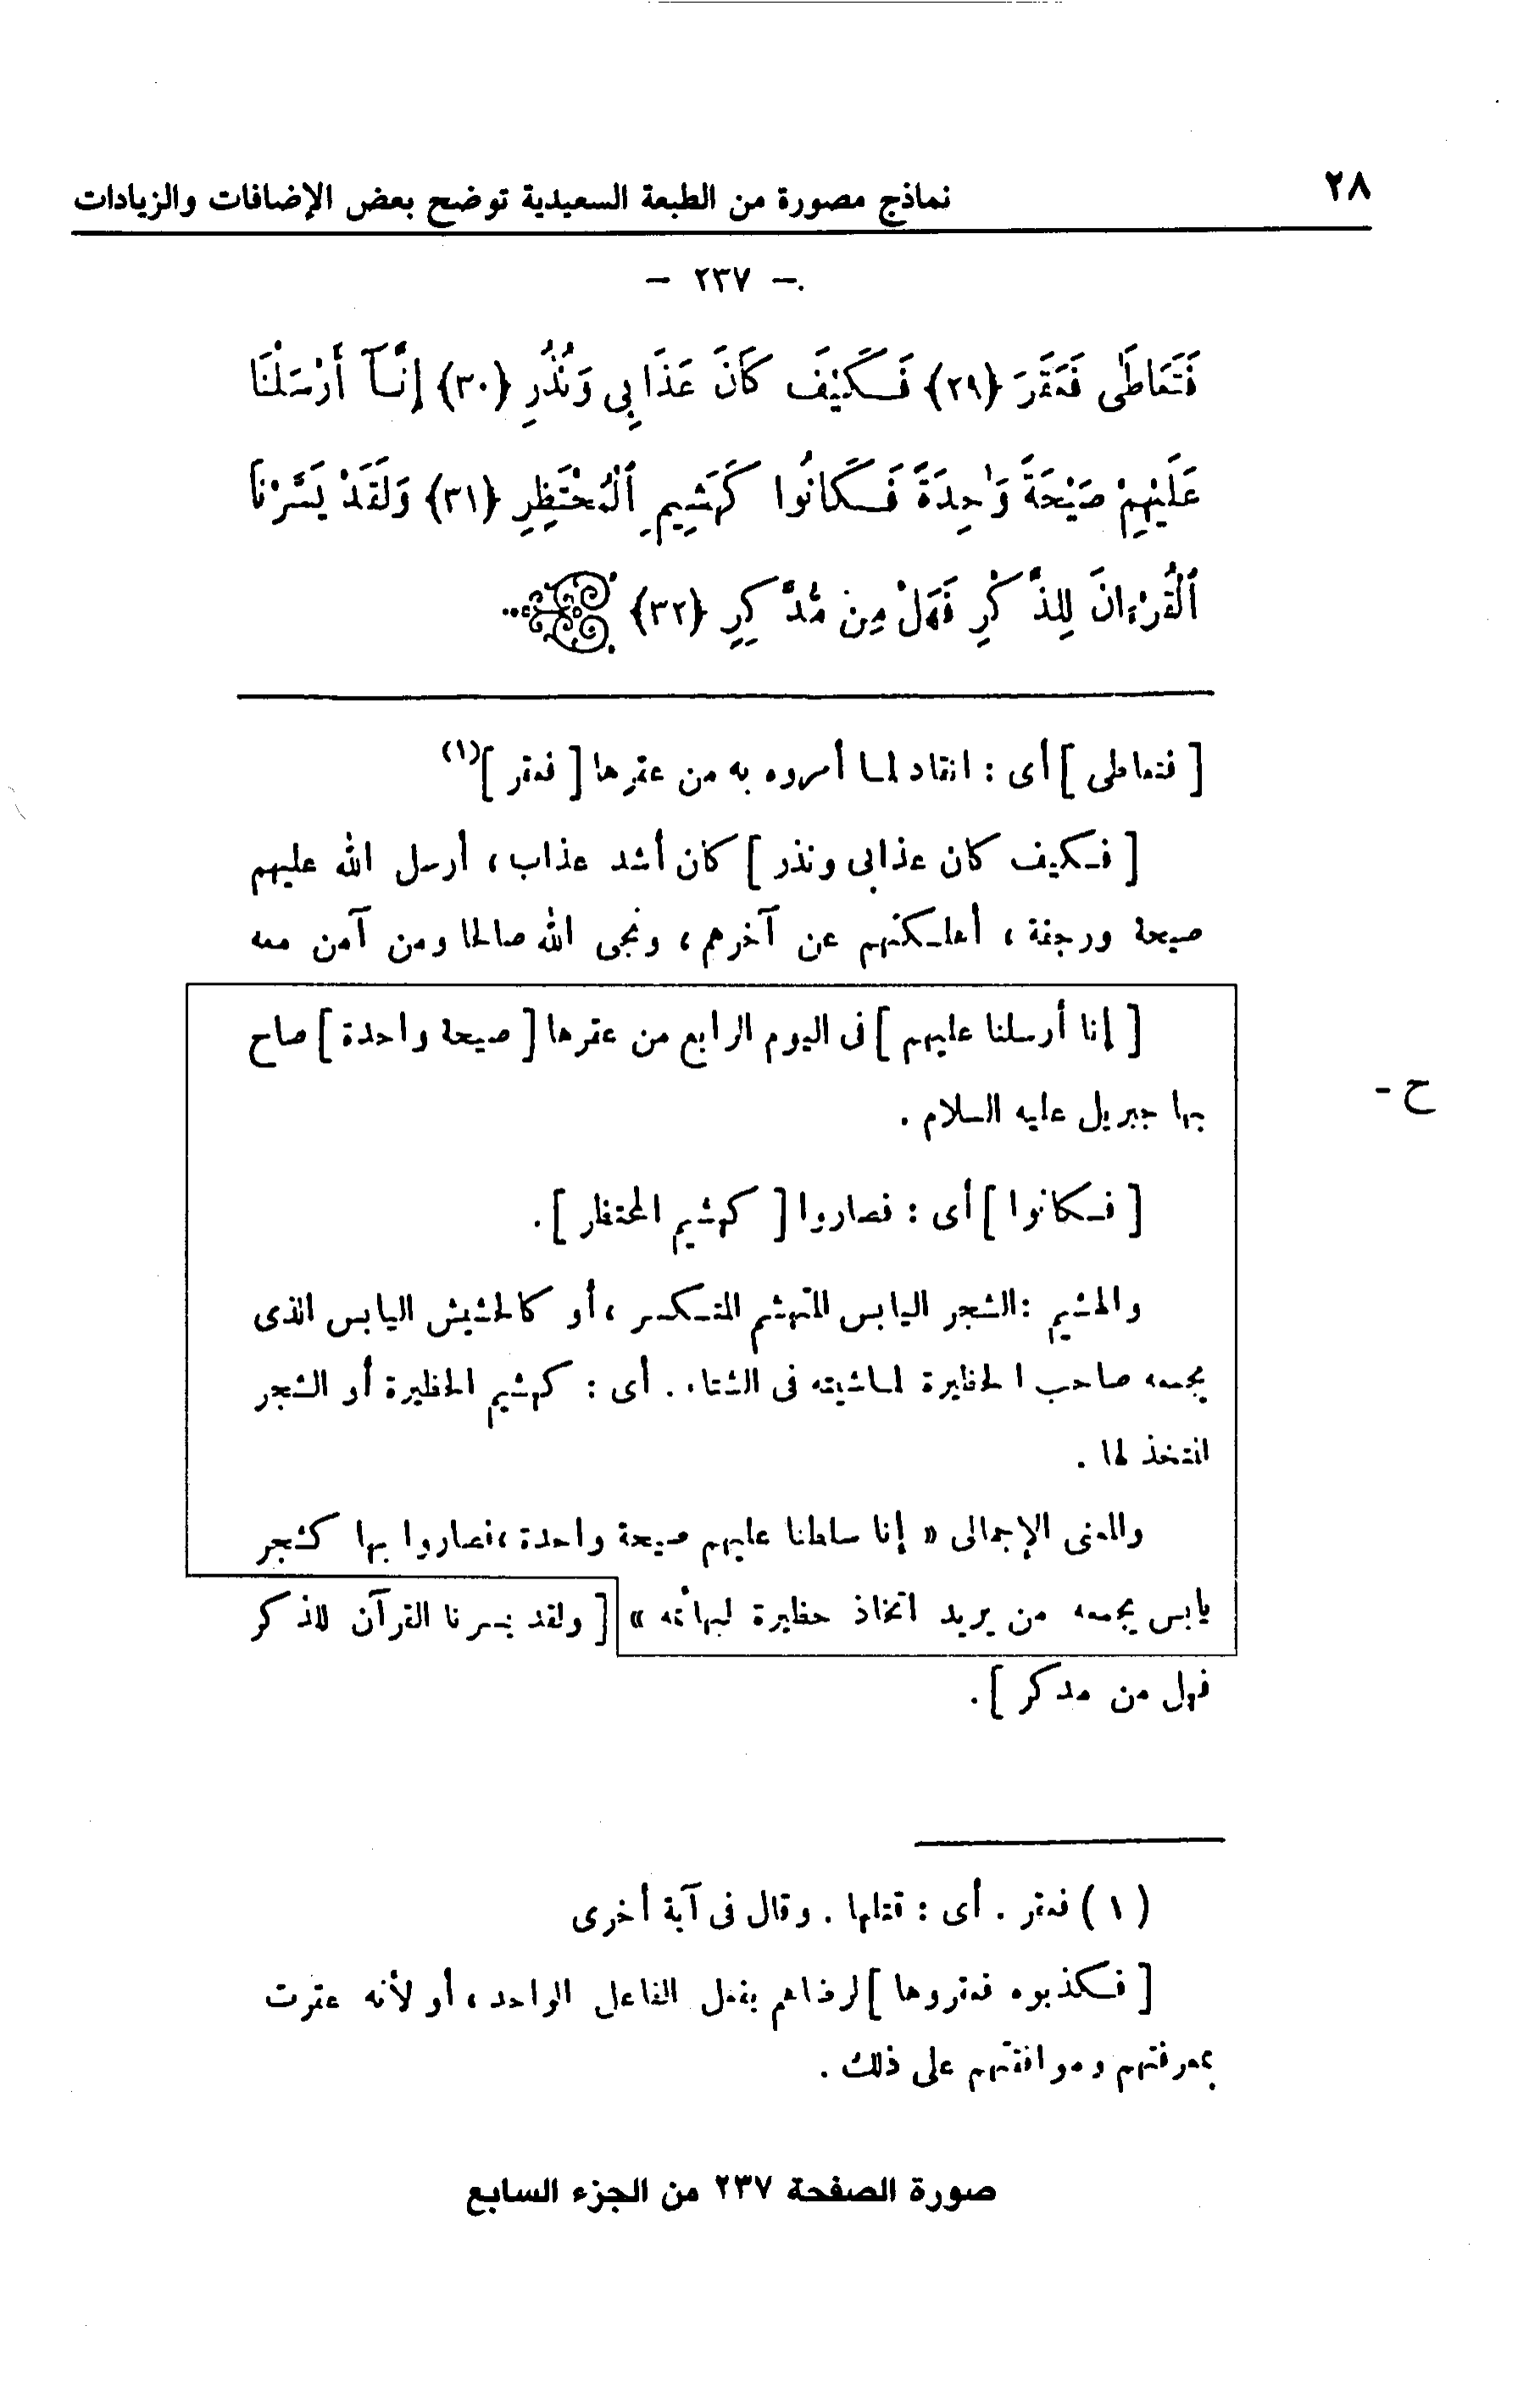 ٢٨
نماذج مصورة من الطبعة السعيدية توضح بعض الإضافات والزيادات
– ٢٣٧ –
فَتَعَاطَىٰ فَعَقَرَ {٢٩} فَكَيْفَ كَانَ عَذَابِى وَنُذُرِ {٣٠} إِنَّآ أَرْسَلْنَا
عَلَيْهِمْ صَيْحَةً وَٰحِدَةً فَكَانُوا كَهَشِيمِ ٱلْمُحْتَظِرِ {٣١} وَلَقَدْ يَسَّرْنَا
ٱلْقُرْءَانَ لِلذِّكْرِ فَهَلْ مِن مُّدَّكِرٍ {٣٢} ...
[ فتعاطى ] أى : انقاد لما أمروه به من عقرها [ فعقر ](١)
[ فكيف كان عذابى ونذر ] كان أشد عذاب ، أرسل الله عليهم
صيحة ورجفة ، أهلكتهم عن آخرهم ، ونجى الله صالحا ومن آمن معه
[ إنا أرسلنا عليهم ] فى اليوم الرابع من عقرها [ صيحة واحدة ] صاح
بها جبريل عليه السلام .
ح -
[ فكانوا ] أى : فصاروا [ كهشيم المحتظر ] .
والهشيم : الشجر اليابس المتهشم المتكسر ، أو كالحشيش اليابس الذى
يجمعه صاحب الحظيرة لماشيته فى الشتاء . أى : كهشيم الحظيرة أو الشجر
المتخذ لها .
والمعنى الإجمالى « إنا سلطنا عليهم صيحة واحدة ، فصاروا بها كشجر
يابس يجمعه من يريد اتخاذ حظيرة لبهائمه » [ ولقد يسرنا القرآن للذكر
فهل من مدكر ] .
( ١ ) فعقر . أى : قتلها . وقال فى آية أخرى
[ فكذبوه فعقروها ] لرضاهم بفعل الفاعل الواحد ، أو لأنه عقرت
بمعرفتهم وموافقتهم على ذلك .
صورة الصفحة ٢٣٧ من الجزء السابع